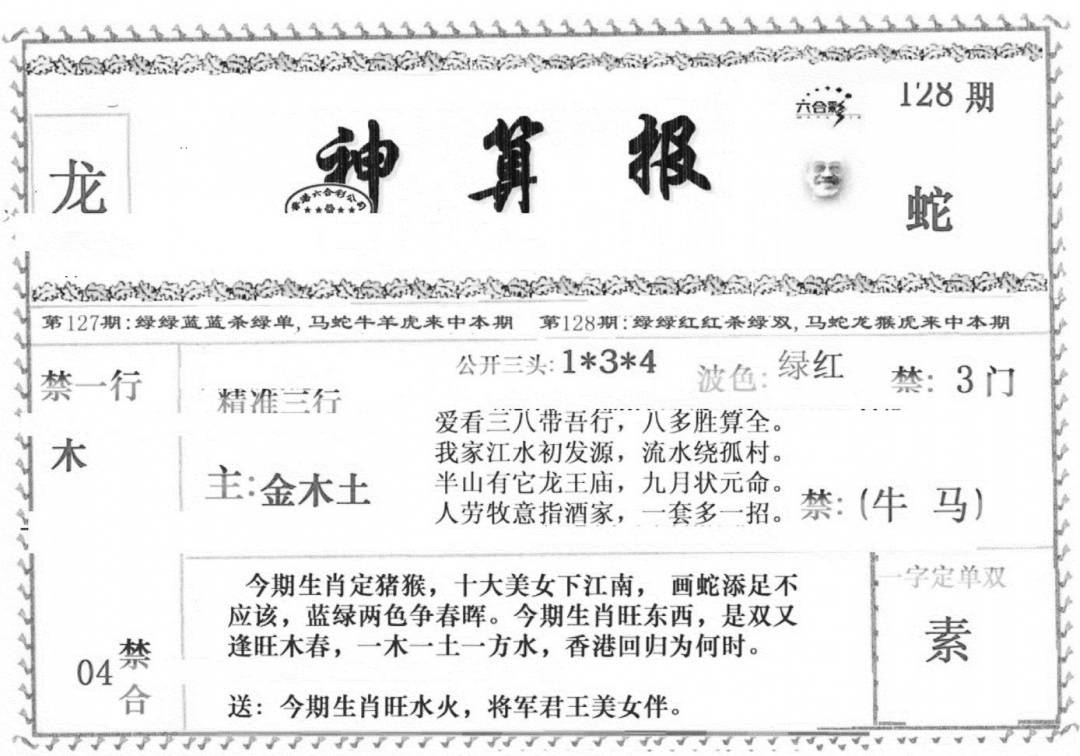 龙
神算报
香港六合彩公司
六合彩
128 期
蛇
第127期:绿绿蓝蓝杀绿单,马蛇牛羊虎来中本期 第128期:绿绿红红杀绿双,马蛇龙猴虎来中本期
禁一行
木
精准三行
主:金木土
公开三头:1*3*4
波色:绿红
禁: 3 门
爱看三八带吾行，八多胜算全。
我家江水初发源，流水绕孤村。
半山有它龙王庙，九月状元命。
人劳牧意指酒家，一套多一招。
禁:(牛 马)
04 禁合
今期生肖定猪猴，十大美女下江南， 画蛇添足不
应该，蓝绿两色争春晖。今期生肖旺东西，是双又
逢旺木春，一木一土一方水，香港回归为何时。
送：今期生肖旺水火，将军君王美女伴。
一字定单双
素